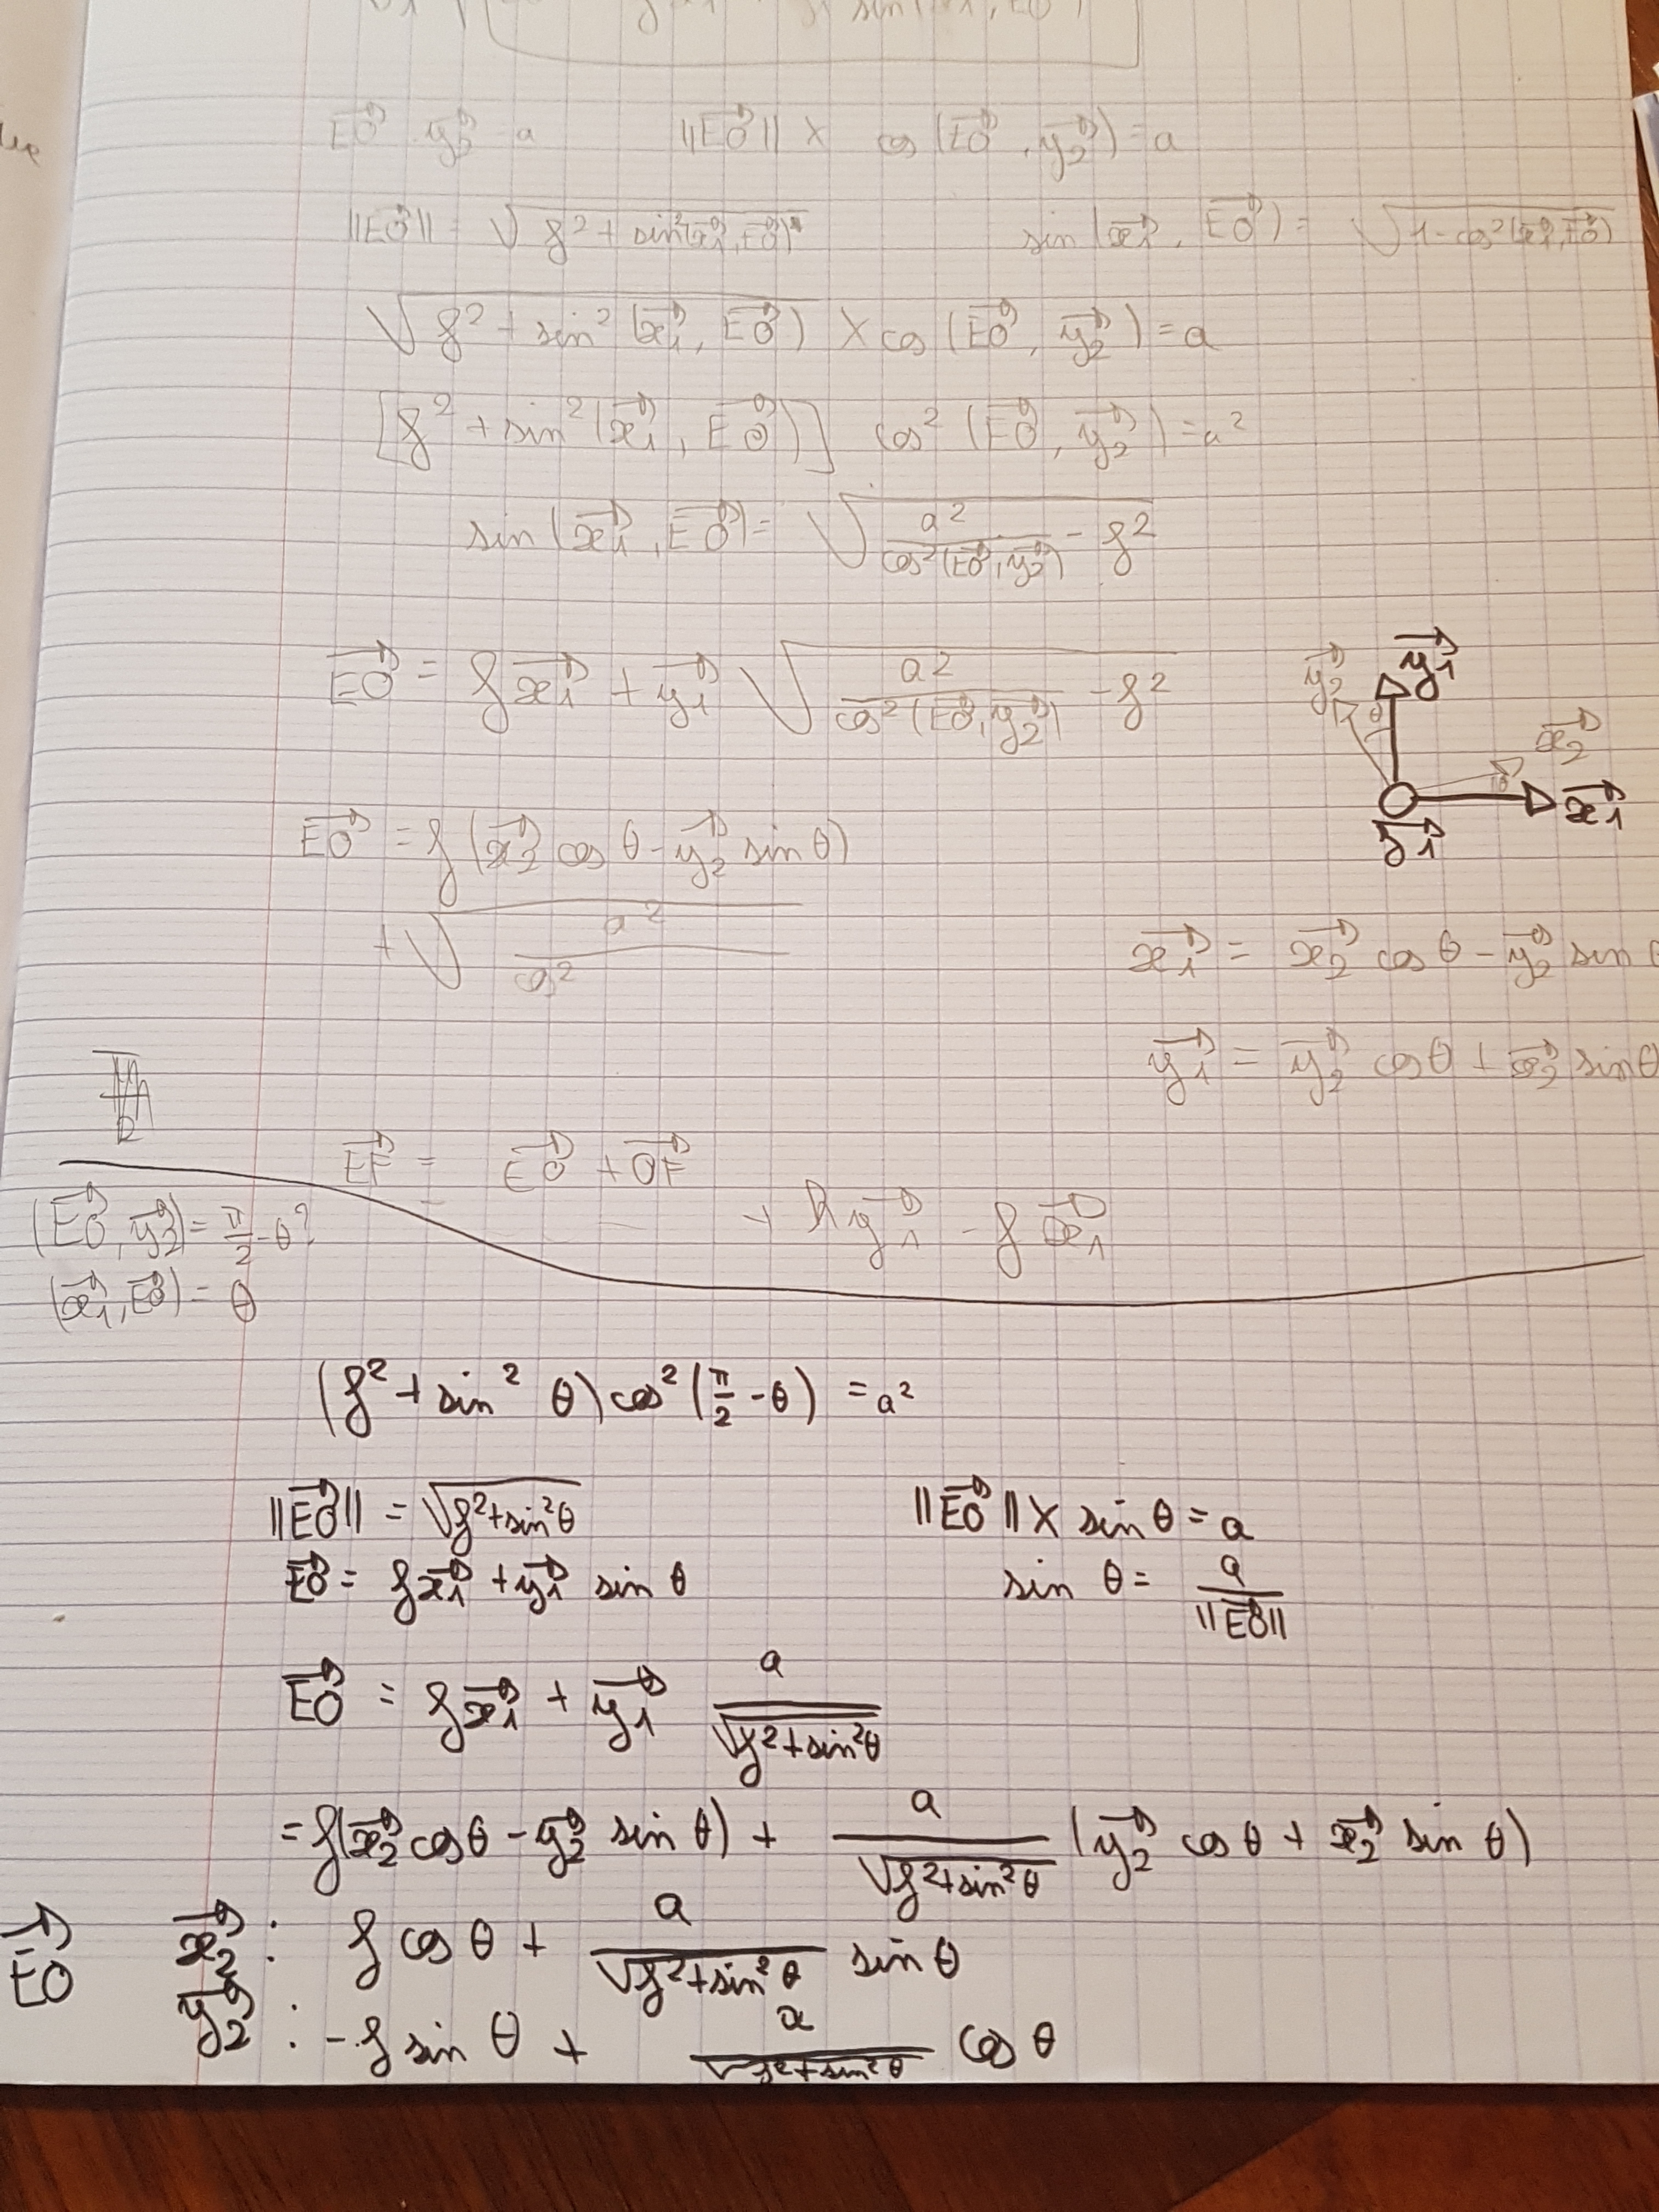 sin(x⃗₁, EO⃗)
EO⃗ . y⃗₂ = a    ||EO⃗|| × cos(EO⃗, y⃗₂) = a
||EO⃗|| = √(f² + sin²(x⃗₁, EO⃗))    sin(x⃗₁, EO⃗) = √(1 - cos²(x⃗₁, EO⃗))
√(f² + sin²(x⃗₁, EO⃗)) × cos(EO⃗, y⃗₂) = a
[f² + sin²(x⃗₁, EO⃗)] cos²(EO⃗, y⃗₂) = a²
sin(x⃗₁, EO⃗) = √(a²/cos²(EO⃗, y⃗₂) - f²)
EO⃗ = f x⃗₁ + y⃗₁ √(a²/cos²(EO⃗, y⃗₂) - f²)
y⃗₂ y⃗₁
θ
x⃗₂
θ
x⃗₁
z⃗₁
EO⃗ = f(x⃗₂ cos θ - y⃗₂ sin θ)
+ √(a²/cos²)
x⃗₁ = x⃗₂ cos θ - y⃗₂ sin θ
y⃗₁ = y⃗₂ cos θ + x⃗₂ sin θ
EF⃗ = EO⃗ + OF⃗
= + h y⃗₁ - f x⃗₁
(EO⃗, y⃗₂) = π/2 - θ ?
(x⃗₁, EO⃗) = θ
(f² + sin² θ) cos²(π/2 - θ) = a²
||EO⃗|| = √(f² + sin²θ)    ||EO⃗|| × sin θ = a
EO⃗ = f x⃗₁ + y⃗₁ sin θ    sin θ = a/||EO⃗||
EO⃗ = f x⃗₁ + y⃗₁ a/√(f² + sin²θ)
= f(x⃗₂ cos θ - y⃗₂ sin θ) + a/√(f² + sin²θ) (y⃗₂ cos θ + x⃗₂ sin θ)
EO⃗    x⃗₂ : f cos θ + a/√(f² + sin²θ) sin θ
y⃗₂ : - f sin θ + a/√(f² + sin²θ) cos θ